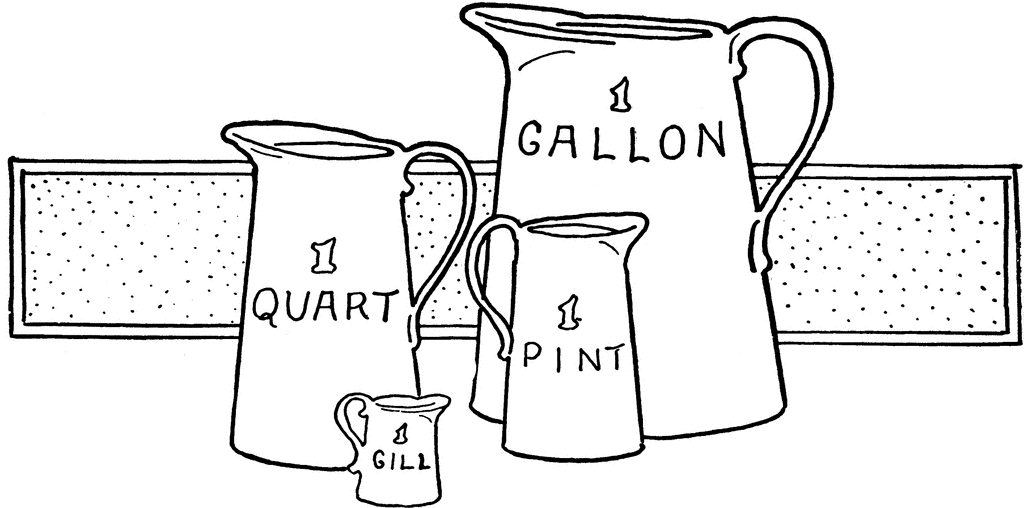 1
GALLON
1
QUART
1
PINT
1
GILL